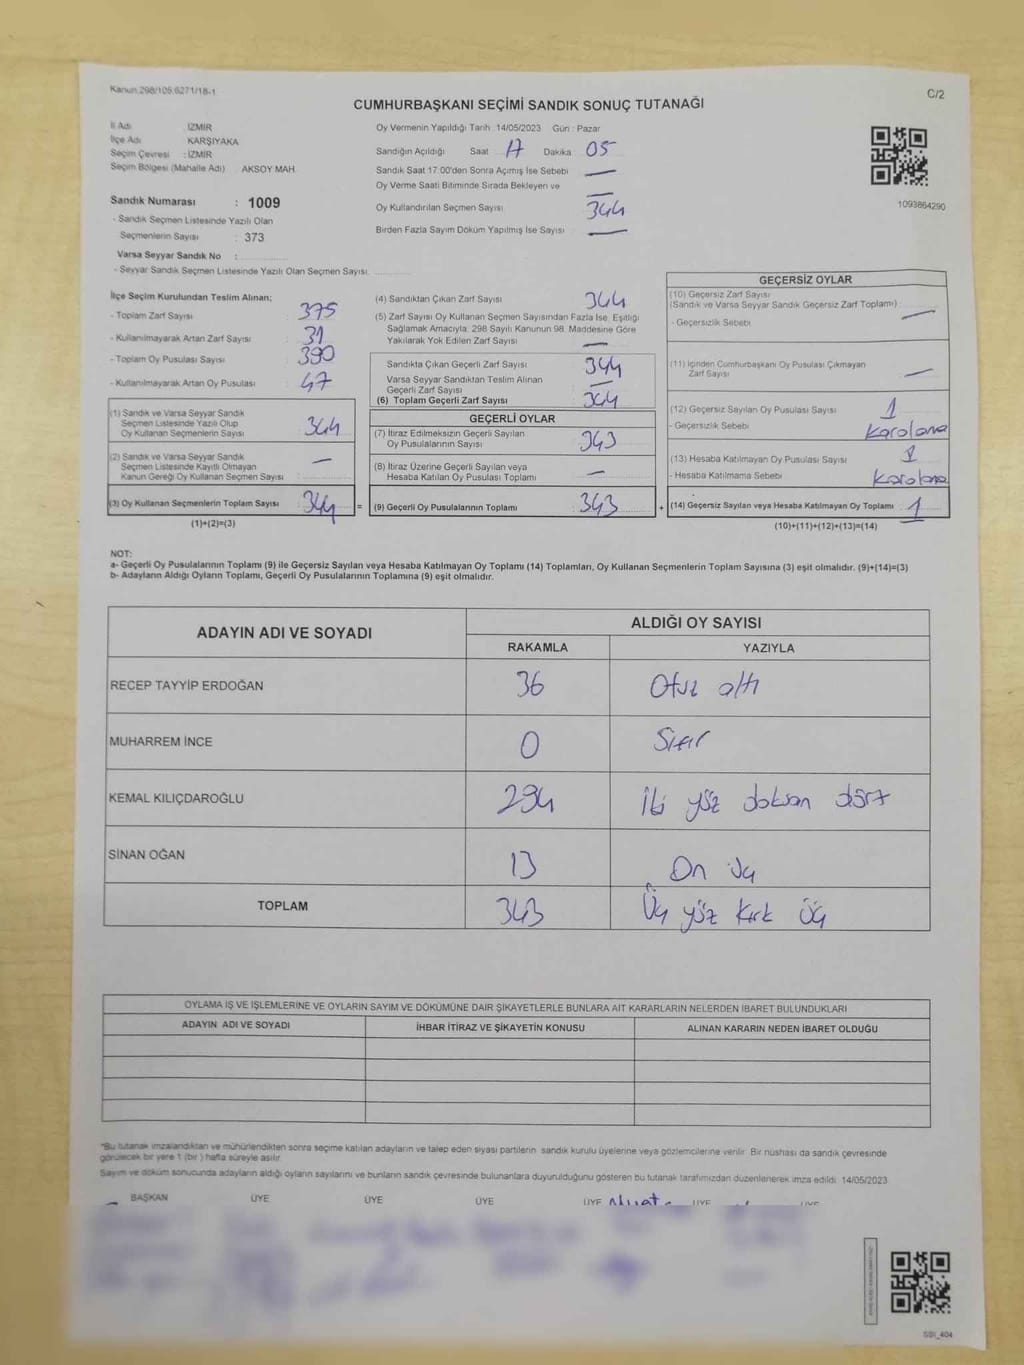 Kanun.298/105,6271/18-1
C/2
CUMHURBAŞKANI SEÇİMİ SANDIK SONUÇ TUTANAĞI
İl Adı : İZMİR
İlçe Adı KARŞIYAKA
Seçim Çevresi : İZMİR
Seçim Bölgesi (Mahalle Adı) AKSOY MAH
Sandık Numarası : 1009
- Sandık Seçmen Listesinde Yazılı Olan
Seçmenlerin Sayısı : 373
Varsa Seyyar Sandık No :
- Seyyar Sandık Seçmen Listesinde Yazılı Olan Seçmen Sayısı
Oy Vermenin Yapıldığı Tarih : 14/05/2023 Gün : Pazar
Sandığın Açıldığı Saat 17 Dakika 05
Sandık Saat 17:00'den Sonra Açımış İse Sebebi —
Oy Verme Saati Bitiminde Sırada Bekleyen ve —
Oy Kullandırılan Seçmen Sayısı 344
Birden Fazla Sayım Döküm Yapılmış İse Sayısı —
1093864290
İlçe Seçim Kurulundan Teslim Alınan;
- Toplam Zarf Sayısı 375
- Kullanılmayarak Artan Zarf Sayısı 31
- Toplam Oy Pusulası Sayısı 390
- Kullanılmayarak Artan Oy Pusulası 47
(1) Sandık ve Varsa Seyyar Sandık
Seçmen Listesinde Yazılı Olup
Oy Kullanan Seçmenlerin Sayısı 344
(2) Sandık ve Varsa Seyyar Sandık
Seçmen Listesinde Kayıtlı Olmayan
Kanun Gereği Oy Kullanan Seçmen Sayısı : —
(3) Oy Kullanan Seçmenlerin Toplam Sayısı 344 =
(1)+(2)=(3)
(4) Sandıktan Çıkan Zarf Sayısı 344
(5) Zarf Sayısı Oy Kullanan Seçmen Sayısından Fazla İse, Eşitliği
Sağlamak Amacıyla, 298 Sayılı Kanunun 98. Maddesine Göre
Yakılarak Yok Edilen Zarf Sayısı —
Sandıkta Çıkan Geçerli Zarf Sayısı 344
Varsa Seyyar Sandıktan Teslim Alınan
Geçerli Zarf Sayısı —
(6) Toplam Geçerli Zarf Sayısı 344
GEÇERLİ OYLAR
(7) İtiraz Edilmeksizin Geçerli Sayılan
Oy Pusulalarının Sayısı 343
(8) İtiraz Üzerine Geçerli Sayılan veya
Hesaba Katılan Oy Pusulası Toplamı —
(9) Geçerli Oy Pusulalarının Toplamı 343 +
GEÇERSİZ OYLAR
(10) Geçersiz Zarf Sayısı
(Sandık ve Varsa Seyyar Sandık Geçersiz Zarf Toplamı) : —
- Geçersizlik Sebebi
(11) İçinden Cumhurbaşkanı Oy Pusulası Çıkmayan
Zarf Sayısı —
(12) Geçersiz Sayılan Oy Pusulası Sayısı 1
- Geçersizlik Sebebi Karalama
(13) Hesaba Katılmayan Oy Pusulası Sayısı
- Hesaba Katılmama Sebebi Karalama
(14) Geçersiz Sayılan veya Hesaba Katılmayan Oy Toplamı 1
(10)+(11)+(12)+(13)=(14)
NOT:
a- Geçerli Oy Pusulalarının Toplamı (9) ile Geçersiz Sayılan veya Hesaba Katılmayan Oy Toplamı (14) Toplamları, Oy Kullanan Seçmenlerin Toplam Sayısına (3) eşit olmalıdır. (9)+(14)=(3)
b- Adayların Aldığı Oyların Toplamı, Geçerli Oy Pusulalarının Toplamına (9) eşit olmalıdır.
ADAYIN ADI VE SOYADI ALDIĞI OY SAYISI
RAKAMLA YAZIYLA
RECEP TAYYİP ERDOĞAN 36 Otuz altı
MUHARREM İNCE 0 Sıfır
KEMAL KILIÇDAROĞLU 294 İki yüz doksan dört
SİNAN OĞAN 13 On üç
TOPLAM 343 Üç yüz kırk üç
OYLAMA İŞ VE İŞLEMLERİNE VE OYLARIN SAYIM VE DÖKÜMÜNE DAİR ŞİKAYETLERLE BUNLARA AİT KARARLARIN NELERDEN İBARET BULUNDUKLARI
ADAYIN ADI VE SOYADI İHBAR İTİRAZ VE ŞİKAYETİN KONUSU ALINAN KARARIN NEDEN İBARET OLDUĞU
*Bu tutanak imzalandıktan ve mühürlendikten sonra seçime katılan adayların ve talep eden siyasi partilerin sandık kurulu üyelerine veya gözlemcilerine verilir. Bir nüshası da sandık çevresinde
görülecek bir yere 1 (bir ) hafta süreyle asılır.
Sayım ve döküm sonucunda adayların aldığı oyların sayılarını ve bunların sandık çevresinde bulunanlara duyurulduğunu gösteren bu tutanak tarafımızdan düzenlenerek imza edildi. 14/05/2023
BAŞKAN ÜYE ÜYE ÜYE ÜYE ÜYE ÜYE